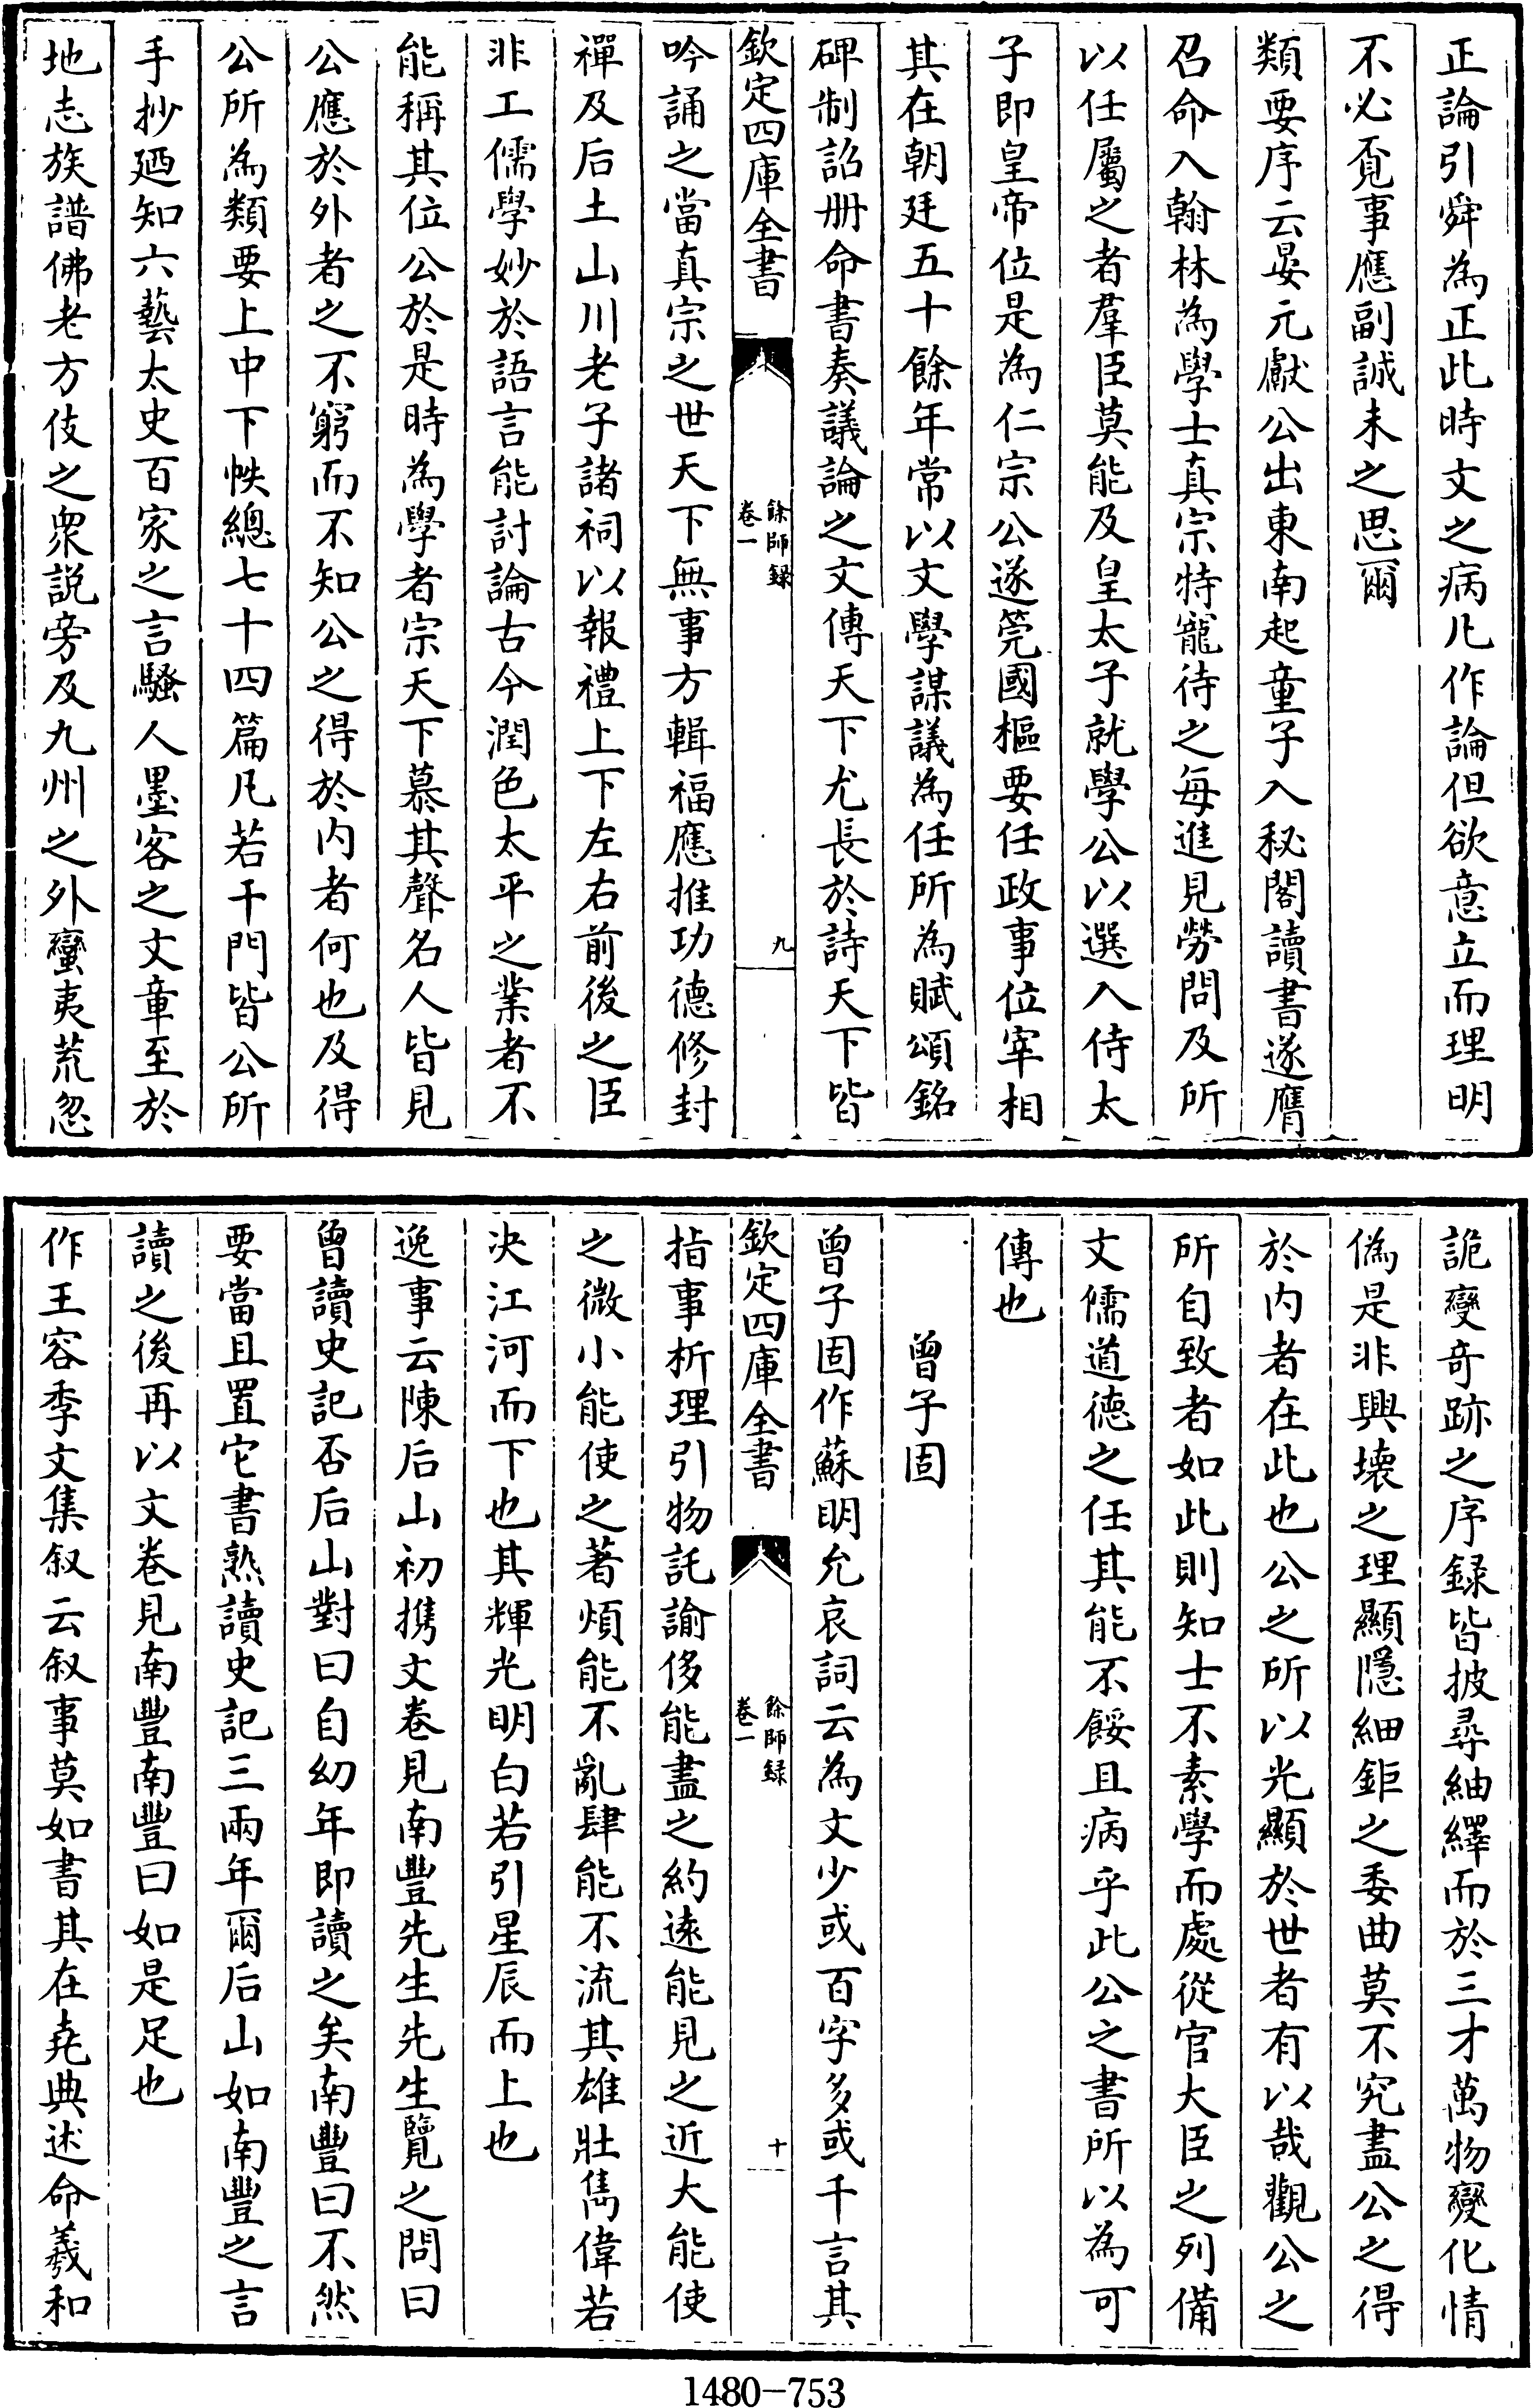 正論引舜為正此時文之病凡作論但欲意立而理明
不必覓事應副誠未之思爾
類要序云晏元獻公出東南起童子入秘閣讀書遂膺
召命入翰林為學士真宗特寵待之每進見勞問及所
以任屬之者羣臣莫能及皇太子就學公以選入侍太
子即皇帝位是為仁宗公遂筦國樞要任政事位宰相
其在朝廷五十餘年常以文學謀議為任所為賦頌銘
碑制詔册命書奏議論之文傳天下尤長於詩天下皆
欽定四庫全書
餘師録
卷一
九
吟誦之當真宗之世天下無事方輯福應推功德修封
禪及后土山川老子諸祠以報禮上下左右前後之臣
非工儒學妙於語言能討論古今潤色太平之業者不
能稱其位公於是時為學者宗天下慕其聲名人皆見
公應於外者之不窮而不知公之得於内者何也及得
公所為類要上中下帙總七十四篇凡若干門皆公所
手抄廼知六藝太史百家之言騷人墨客之文章至於
地志族譜佛老方伎之衆説旁及九州之外蠻夷荒忽
詭變奇跡之序録皆披尋紬繹而於三才萬物變化情
偽是非興壞之理顯隱細鉅之委曲莫不究盡公之得
於内者在此也公之所以光顯於世者有以哉觀公之
所自致者如此則知士不素學而處從官大臣之列備
文儒道徳之任其能不餒且病乎此公之書所以為可
傳也
曾子固
曾子固作蘇明允哀詞云為文少或百字多或千言其
欽定四庫全書
餘師録
卷一
十
指事析理引物託諭侈能盡之約逺能見之近大能使
之微小能使之著煩能不亂肆能不流其雄壯雋偉若
决江河而下也其輝光明白若引星辰而上也
逸事云陳后山初携文卷見南豐先生先生覽之問曰
曾讀史記否后山對曰自幼年即讀之矣南豐曰不然
要當且置它書熟讀史記三兩年爾后山如南豐之言
讀之後再以文卷見南豐南豐曰如是足也
作王容季文集叙云叙事莫如書其在堯典述命羲和
1480-753